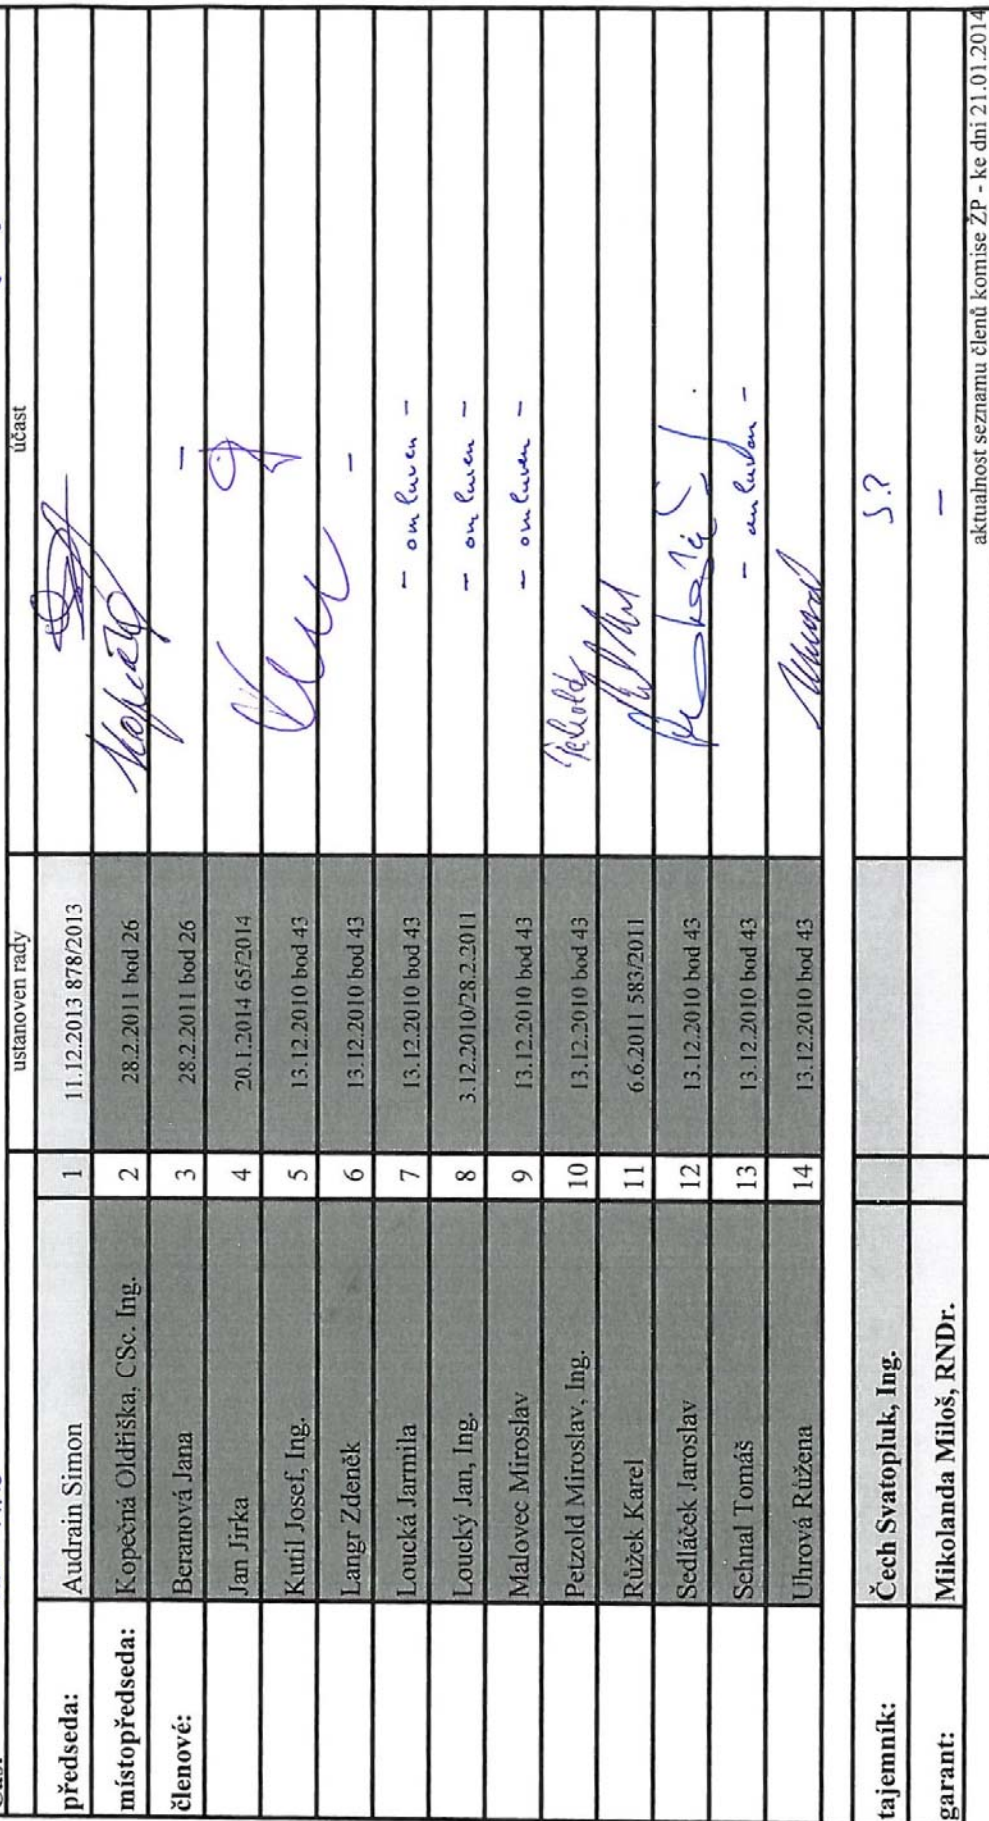 ustanoven rady účast
předseda: Audrain Simon 1 11.12.2013 878/2013
místopředseda: Kopečná Oldřiška, CSc. Ing. 2 28.2.2011 bod 26
členové: Beranová Jana 3 28.2.2011 bod 26 –
Jan Jirka 4 20.1.2014 65/2014
Kutil Josef, Ing. 5 13.12.2010 bod 43
Langr Zdeněk 6 13.12.2010 bod 43 –
Loucká Jarmila 7 13.12.2010 bod 43 – omluven –
Loucký Jan, Ing. 8 3.12.2010/28.2.2011 – omluven –
Malovec Miroslav 9 13.12.2010 bod 43 – omluven –
Petzold Miroslav, Ing. 10 13.12.2010 bod 43
Růžek Karel 11 6.6.2011 583/2011
Sedláček Jaroslav 12 13.12.2010 bod 43
Sehnal Tomáš 13 13.12.2010 bod 43 – omluven –
Uhrová Růžena 14 13.12.2010 bod 43
tajemník: Čech Svatopluk, Ing.
garant: Mikolanda Miloš, RNDr. –
aktualnost seznamu členů komise ŽP - ke dni 21.01.2014